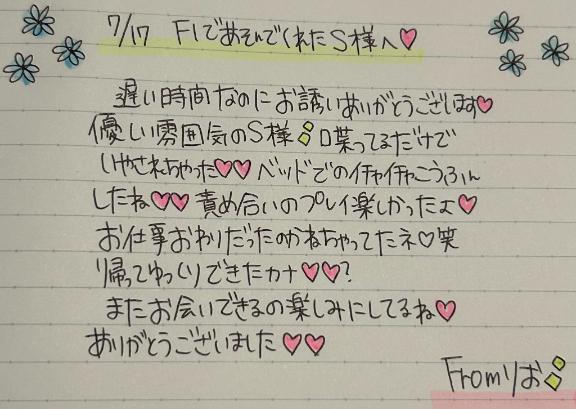 7/17 F1であそんでくれたS様へ♥
遅い時間なのにお誘いありがとうございます♥
優しい雰囲気のS様 喋ってるだけで
いやされちゃった♥♥ ベッドでのイチャイチャこうふん
したね♥♥ 責め合いのプレイ楽しかったよ♥
お仕事おわりだったのかねちゃってたネ♡笑
帰ってゆっくりできたカナ♥♥?
またお会いできるの楽しみにしてるね♥
ありがとうございました♥♥
Fromりお